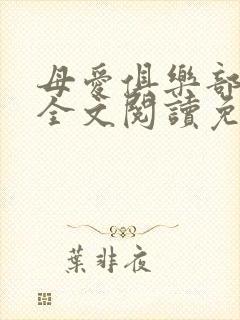 母愛俱樂部
全文閱讀免
葉非夜